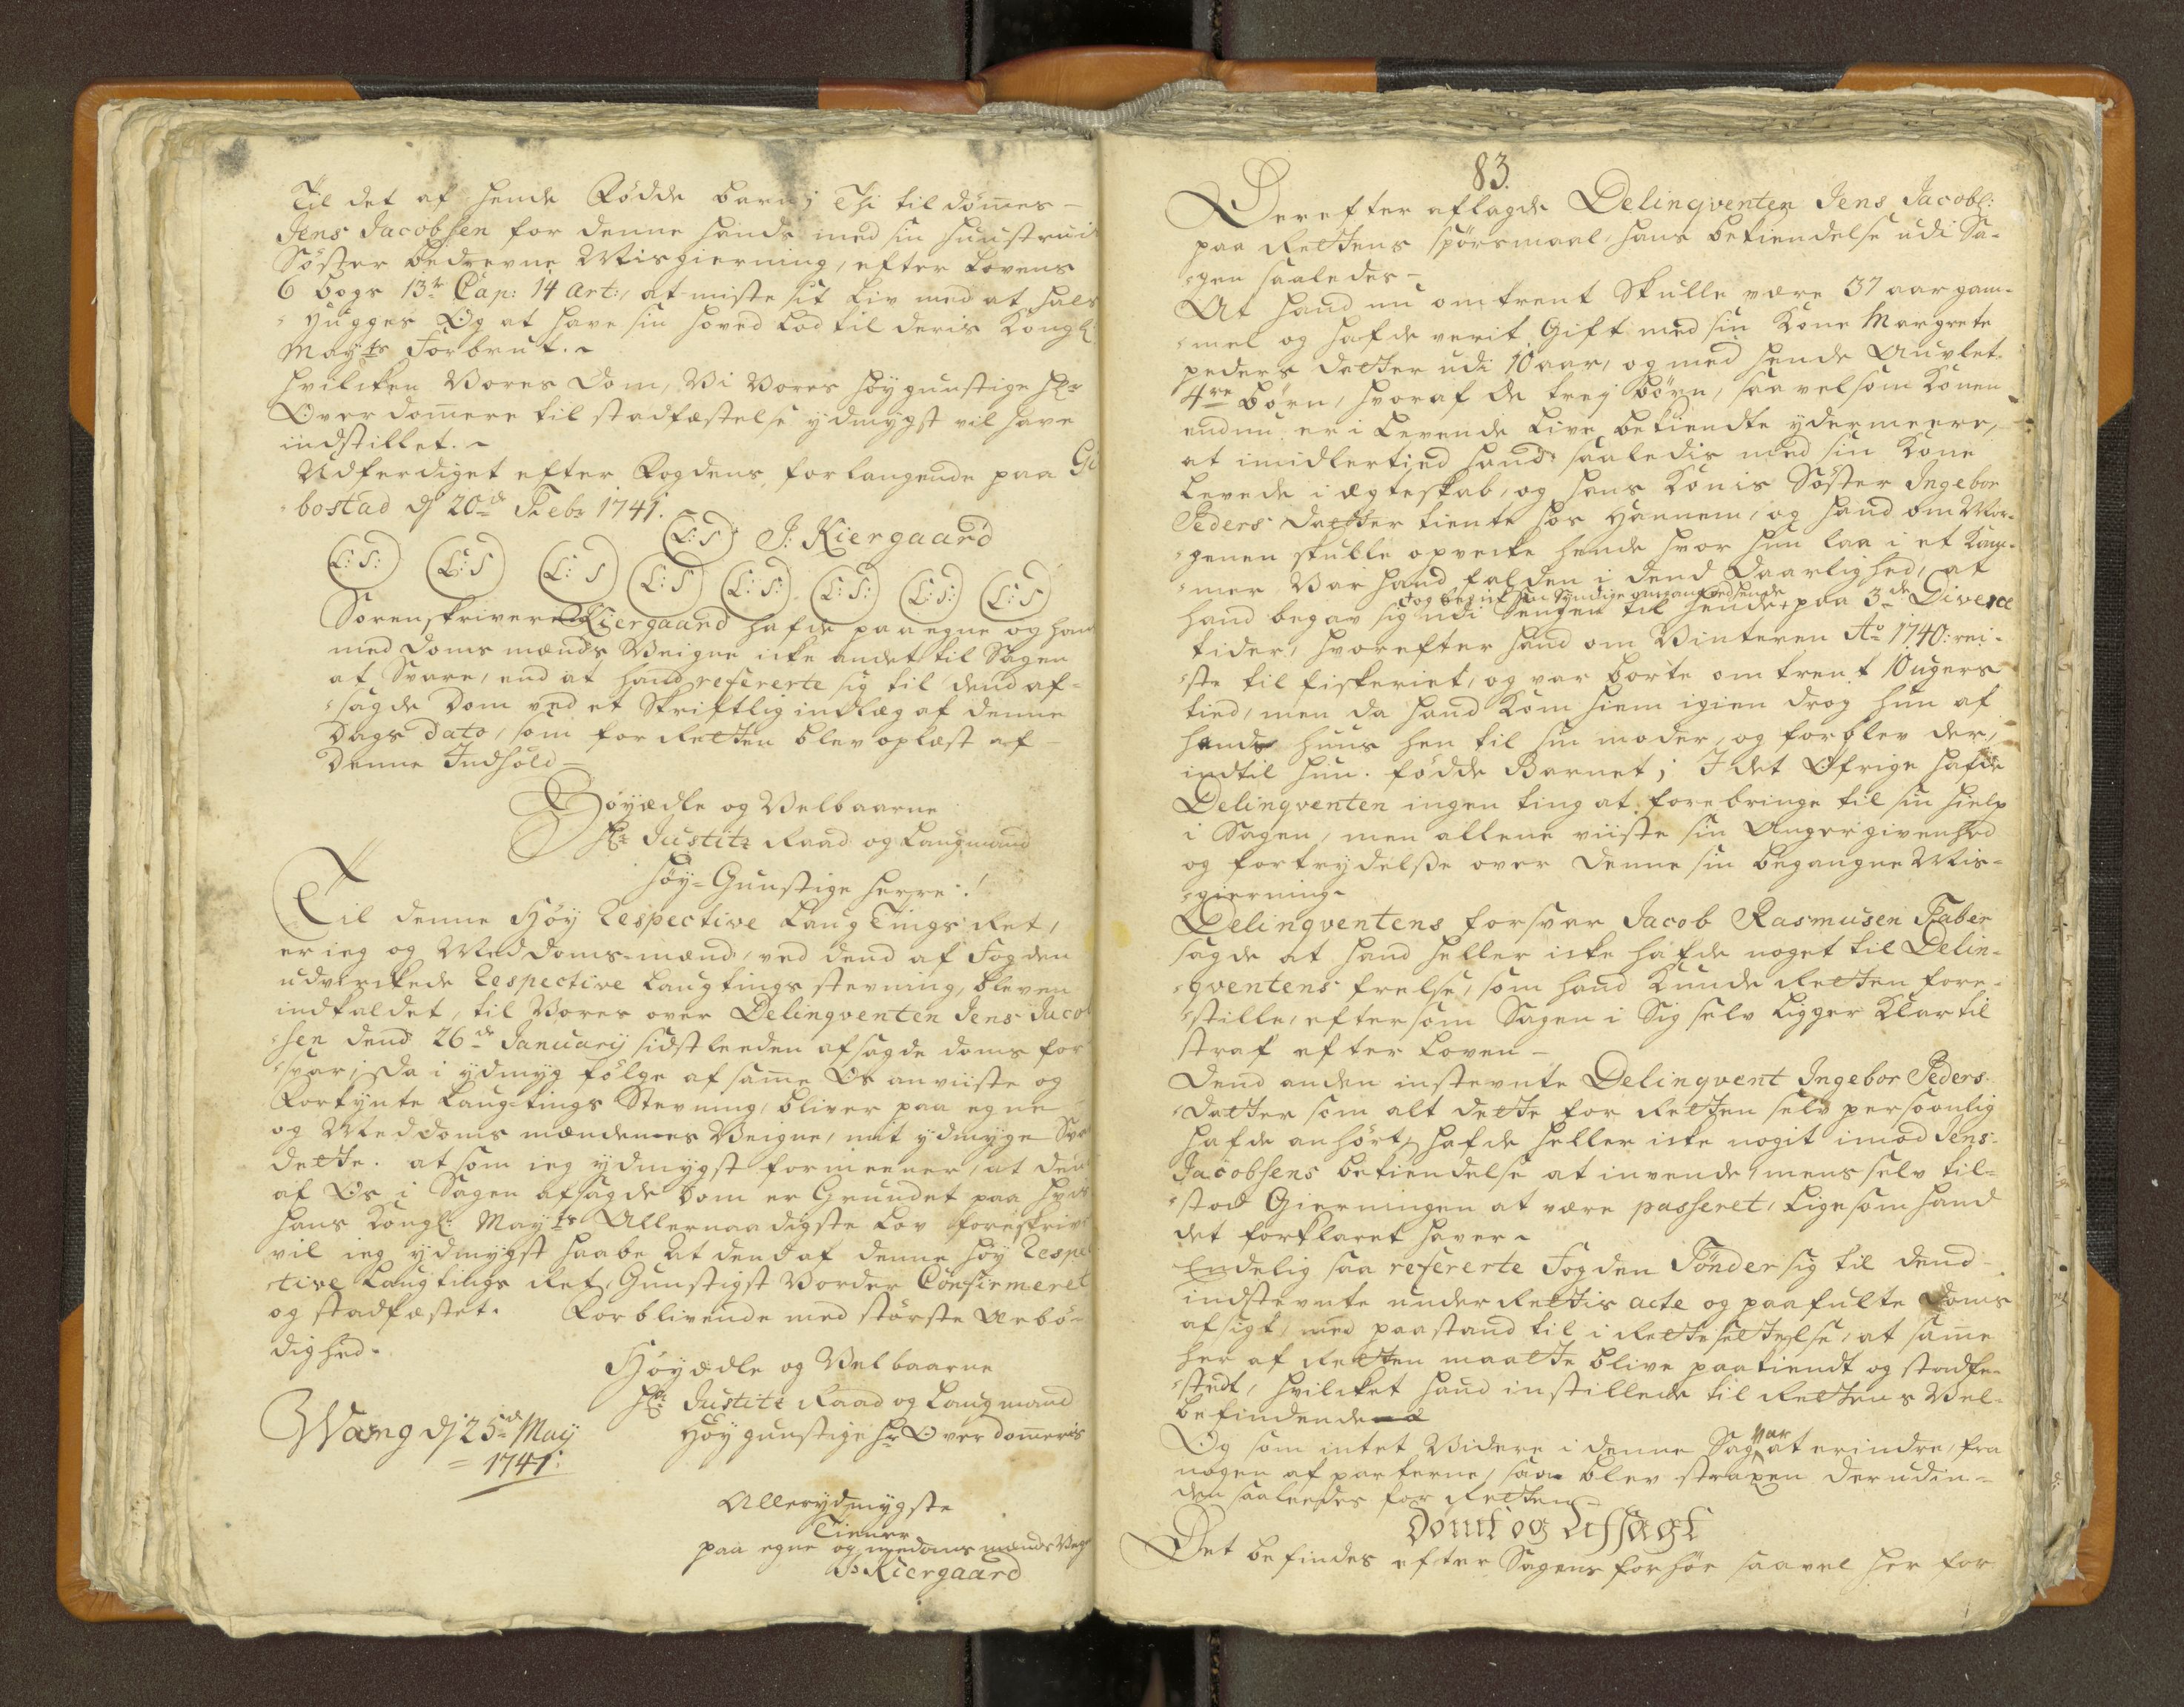 Til det af hende Födde barn; Thi tildömes
Jens Jacobsen for denne hands med sin huustrues
Söster bedrevne Misgierning, efter Lovens
6 bogs 13de Cap: 14 Art:, at miste sit Liv med at hals
hugges Og at have sin hoved Lod til deris Kongl:
Mayts Forbrut.
hvilcken Vores dom, Vi Vores höygunstige Hr
Overdomere til stadfæstelse ydmygst vil have
indstillet.
Udferdiget efter Fogdens forlangende paa Gi
bostad d 20de Febr 1741.
(L:S) J: Kiergaard
(L:S:) (L:S) (L:S) (L:S) (L:S:) (L:S:) (L:S:) (L:S)
Sorenskriveren Kiergaard hafde paa egne og hans
med doms mænds Veigne icke andet til Sagen
at Svare, end at hand refererte sig til dend af-
sagde dom ved et Skriftlig indlæg af denne
Dags Dato, som for Retten blev oplæst af
denne Indhold
Höyædle og Velbaarne
Hr Justitz Raad og Laugmand
höy-Gunstige herre.!
Til denne Höy Respective LaugTings Ret,
er ieg og Meddoms-mænd, ved dend af Fogden
udvirckede Respective Laugtings stevning, bleven
indkaldet, til Vores over Delinqventen Jens Jacob
sen dend 26de January sidstleeden afsagde doms for
svar; da i ydmyg fölge af same Os anviiste og
Forkynte Laug-tings Stevning, bliver paa egne
og Meddoms mændenes Veigne, mit ydmyge Svar
dette. at som ieg ydmygst formeener, at den
af Os i Sagen afsagde dom er Grundet paa hvis
hans Kongl: Mayts Allernaadigste Lov foreskriver
vil ieg ydmygst haabe At dend af denne höy Respe
ctive Laugtings Ret, Gunstigst Vorder Confirmeret
og stadfæstet. Forblivende med störste ærbö-
dighed.
Höyædle og Velbaarne
Hr Justitz Raad og Laugmand
Höygunstige Hr Overdomeris
Wang d 25de May
1741:
Allerydmygste
Tiener
paa egne og meedoms mænds Vegne
J: Kiergaard
83.
Derefter aflagde Delinqventen Jens Jacobs:
paa Rettens spörsmaal, hans bekiendelse udi Sa-
gen saaledes
At hand nu omtrent Skulle være 37 aar gam-
mel og hafde verit Gift med sin Kone Margrete
peders datter udi 10 aar, og med hende Auvlet
4re börn, hvoraf de trej börn, saavelsom Konen
endnu er i Levende Live, bekiendte ydermeere,
at imidlertied hand saaledis med sin Kone
Levede i ægteskab, og hans Konis Söster Ingebor
Peders datter tiente hos Hannem, og hand om Mor-
genen skulle opvecke hende hvor hun laa i et Kam-
mer Var hand falden i dend daarlighed, at
hand begav sig udi Sengen til hende paa 3de Diverse
tider, hvorefter hand om Vinteren Ao 1740: rei-
ste til fiskeriet, og var borte omtrent 10 ugers
tied, men da hand kom hiem igien drog hun af
hands huus hen til sin moder, og forblev der,
indtil hun födde Barnet; I det Öfrige hafde
Delinqventen ingen ting at forebringe til sin hielp
i Sagen, men allene viiste sin Angergivenhed
og fortrydelße over denne sin begangne Mis-
gierning
Delinqventens forsvar Jacob Rasmusen Faber
sagde at hand heller icke hafde noget til Delin-
qventens frelse, som hand kunde Retten fore-
stille, eftersom Sagen i Sig selv Ligger Klar til
straf efter Loven
Dend anden instevnte Delinqvent Ingebor Peders
datter som alt dette for Retten selv persoonlig
hafde anhört, hafde heller icke nogit imod Jens
Jacobsens bekiendelse at invende, mens selv til-
stod Gierningen at være passeret, Ligesom hand
det forklaret haver
Endelig saa refererte Fogden Tönder sig til dend
indstevnte underRettis acte og paafulte doms
afsigt, med paastand til i Rettesettelse, at same
her af Retten maatte blive paakiendt og stadfe-
stedt, hvilcket hand instillede til Rettens Vel-
befindende
Og som intet Videre i denne Sag var at erindre, fra
nogen af parterne, saa blev straxen derudin-
den saaledes for Retten
Dömt og Afsagt
Det befindes efter Sagens forhör saavel her for